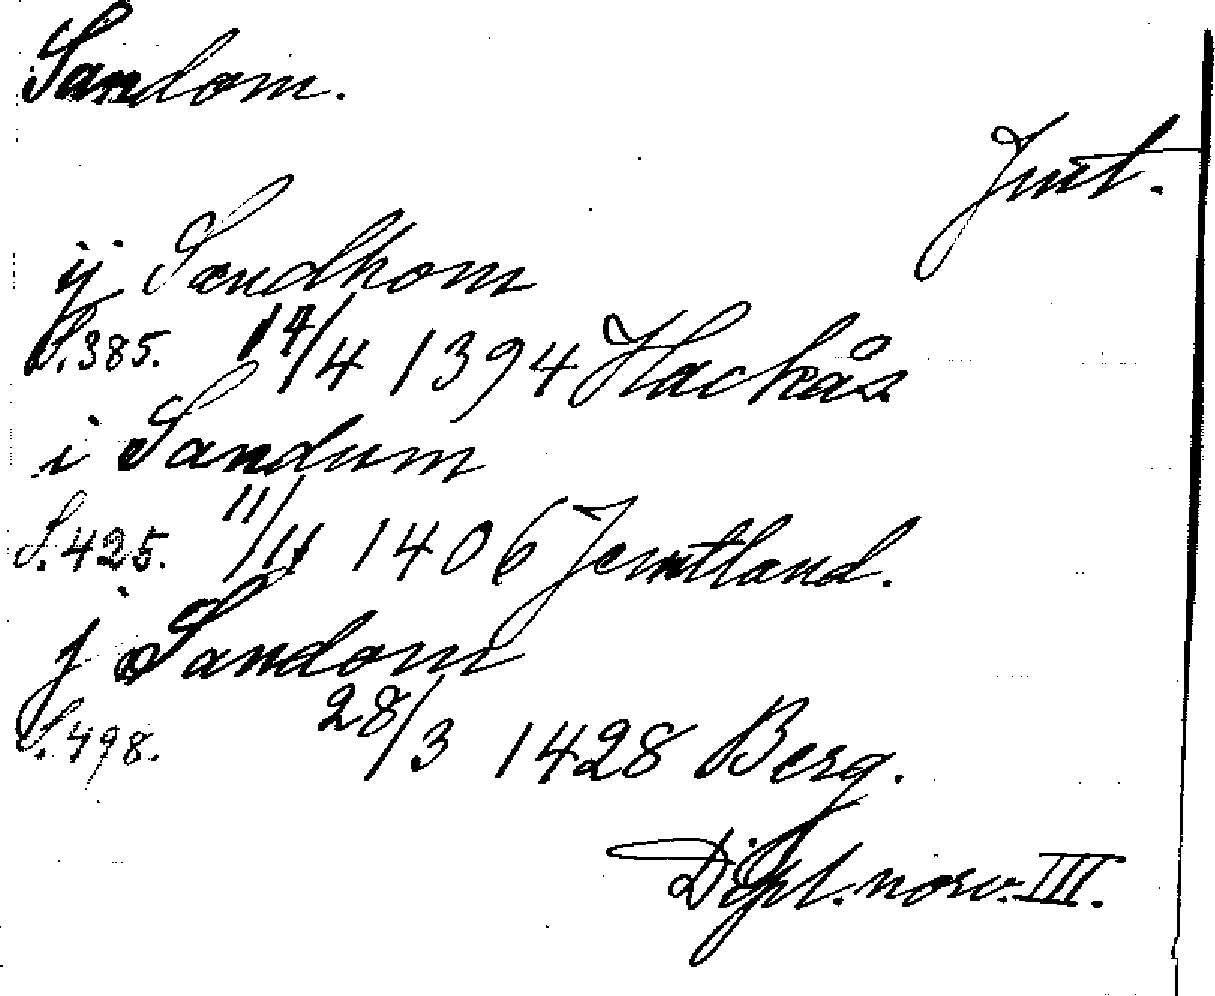 Sandom.
Jmt.
ij Sandhom
S. 385. 14/4 1394 Hackås
i Sandum
S. 425. 11/11 1406 Jemtland.
j Sandom
S. 498. 28/3 1428 Berg.
Dipl. norv. III.